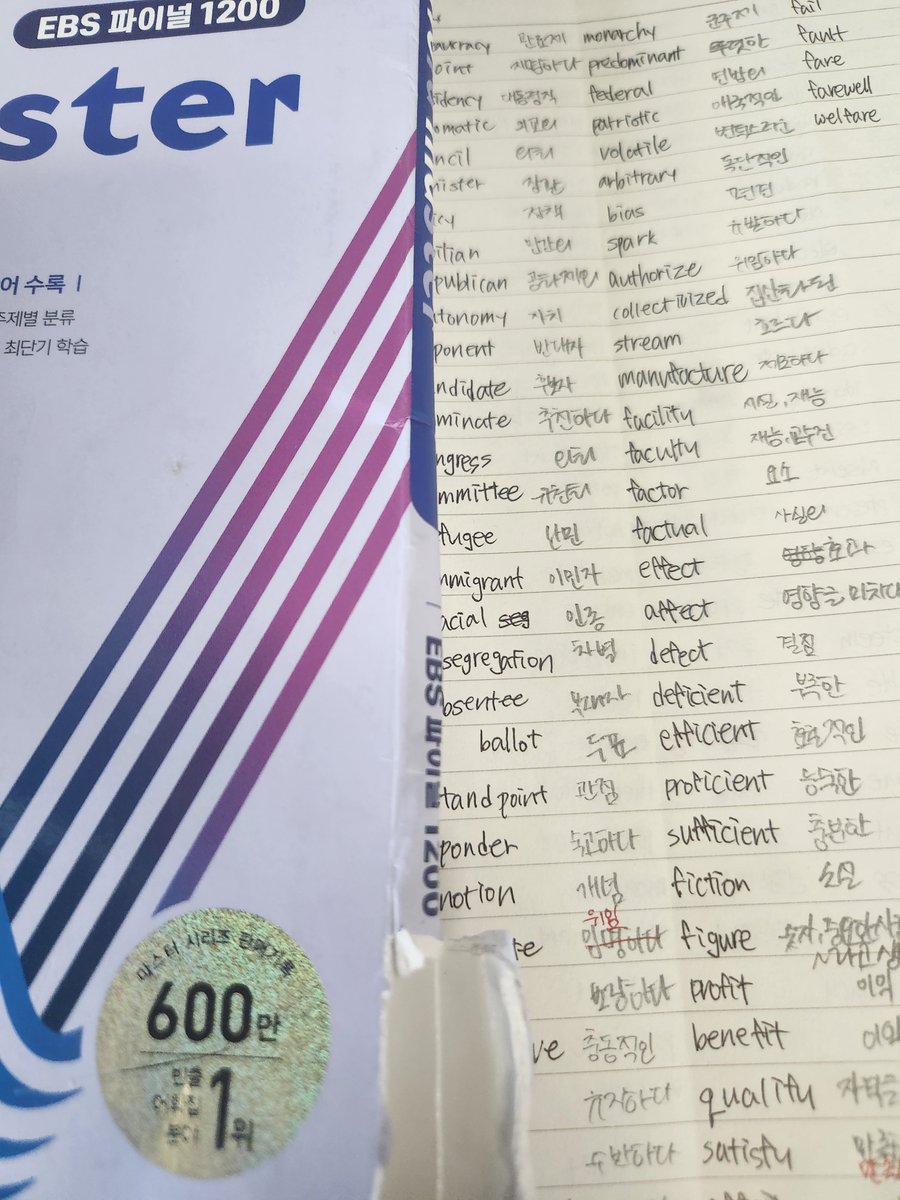 EBS 파이널 1200
ster
어 수록 |
주제별 분류
최단기 학습
마스터 시리즈 판매기록
600만
1위
EBS 파이널 1200
관료제 monarchy 군주제 fail
지명하다 predominant 뚜렷한 fault
대통령직 federal 연방의 fare
외교의 patriotic 애국적인 farewell
volatile 변덕스러운 welfare
장관 arbitrary 독단적인
정책 bias 편견
민간의 spark 유발하다
publican 공화제의 authorize 위임하다
tonomy 자치 collectivized 집산화된
ponent 반대자 stream 흐르다
ndidate 후보자 manufacture 제조하다
minate 추천하다 facility 시설, 재능
ngress 의회 faculty 재능, 교수진
mmittee 위원회 factor 요소
fugee 난민 factual 사실의
migrant 이민자 effect 효과
acial seg 인종 affect 영향을 미치다
segregation 차별 defect 결점
bsentee 부재자 deficient 부족한
ballot 투표 efficient 효율적인
tand point 관점 proficient 능숙한
ponder 숙고하다 sufficient 충분한
notion 개념 fiction 소설
위임
te 임명하다 figure 숫자, 중요한
profit 이익
ve 충동적인 benefit
유지하다 quality
수반하다 satisfy